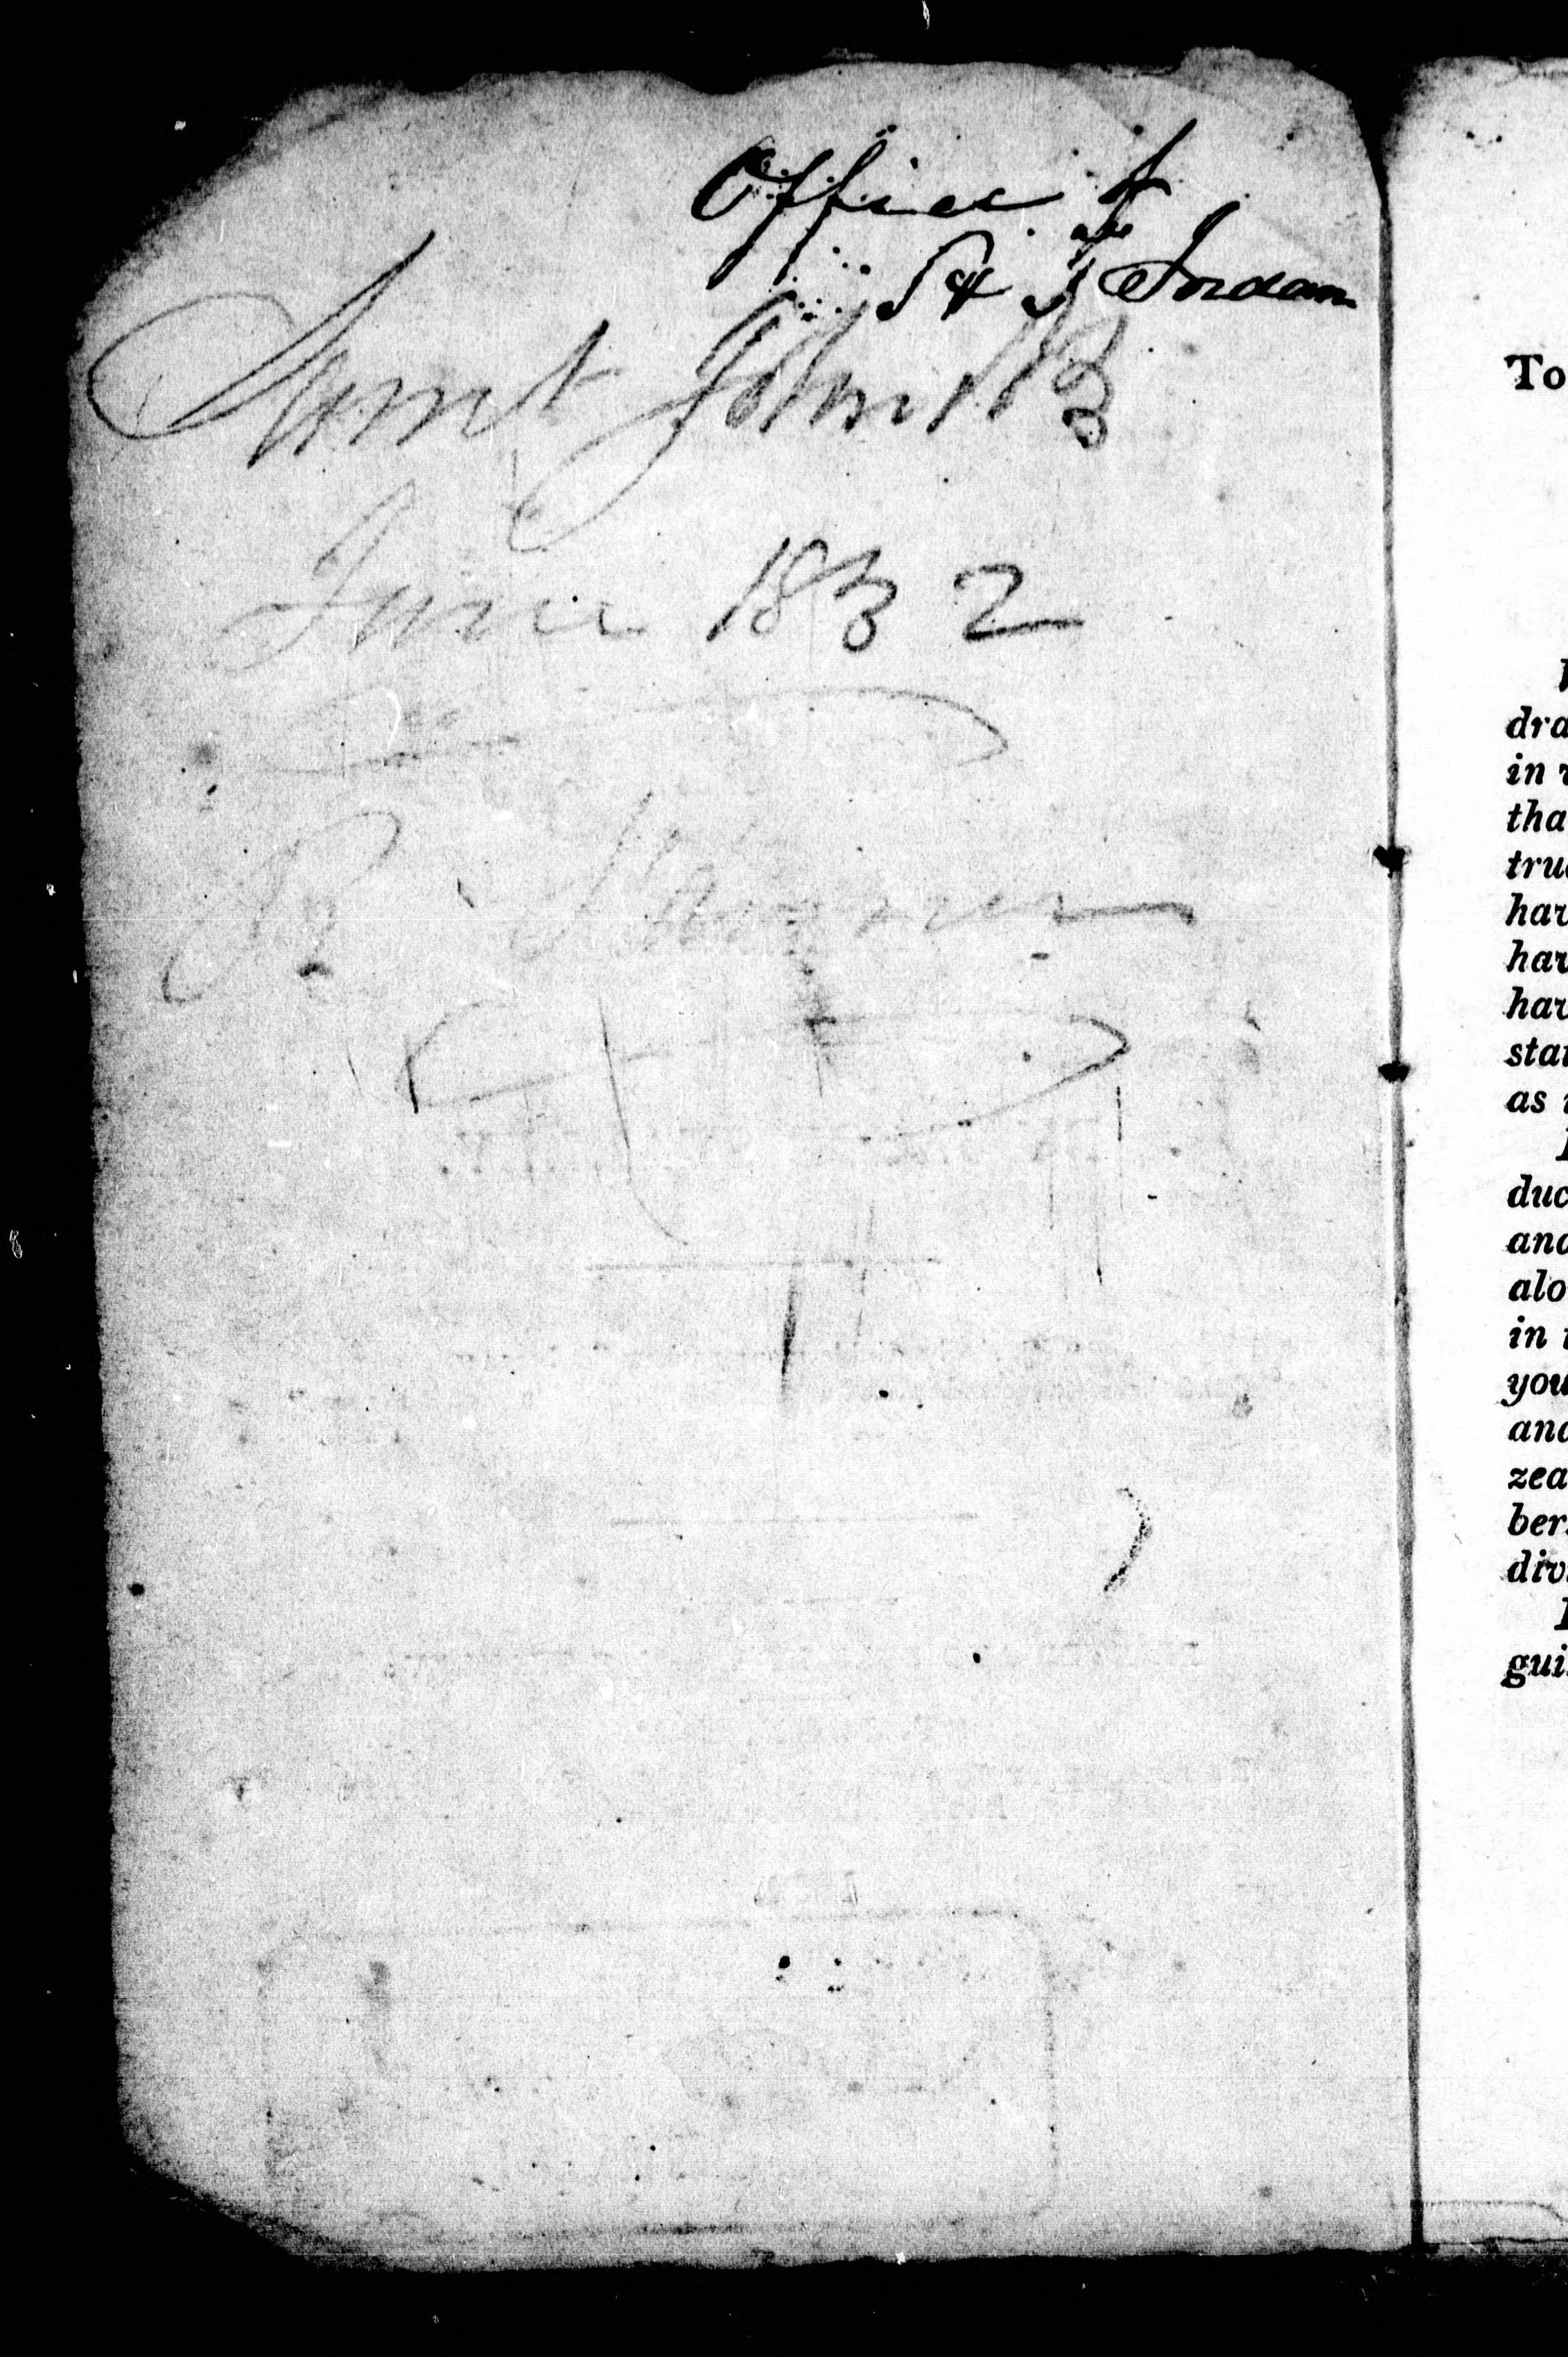 Office of
St J Jordan
Saint John NB
June 1832
To
dra
in
tha
tru
har
har
har
stan
as
duc
and
alo
in
you
and
zea
ber
div
gui